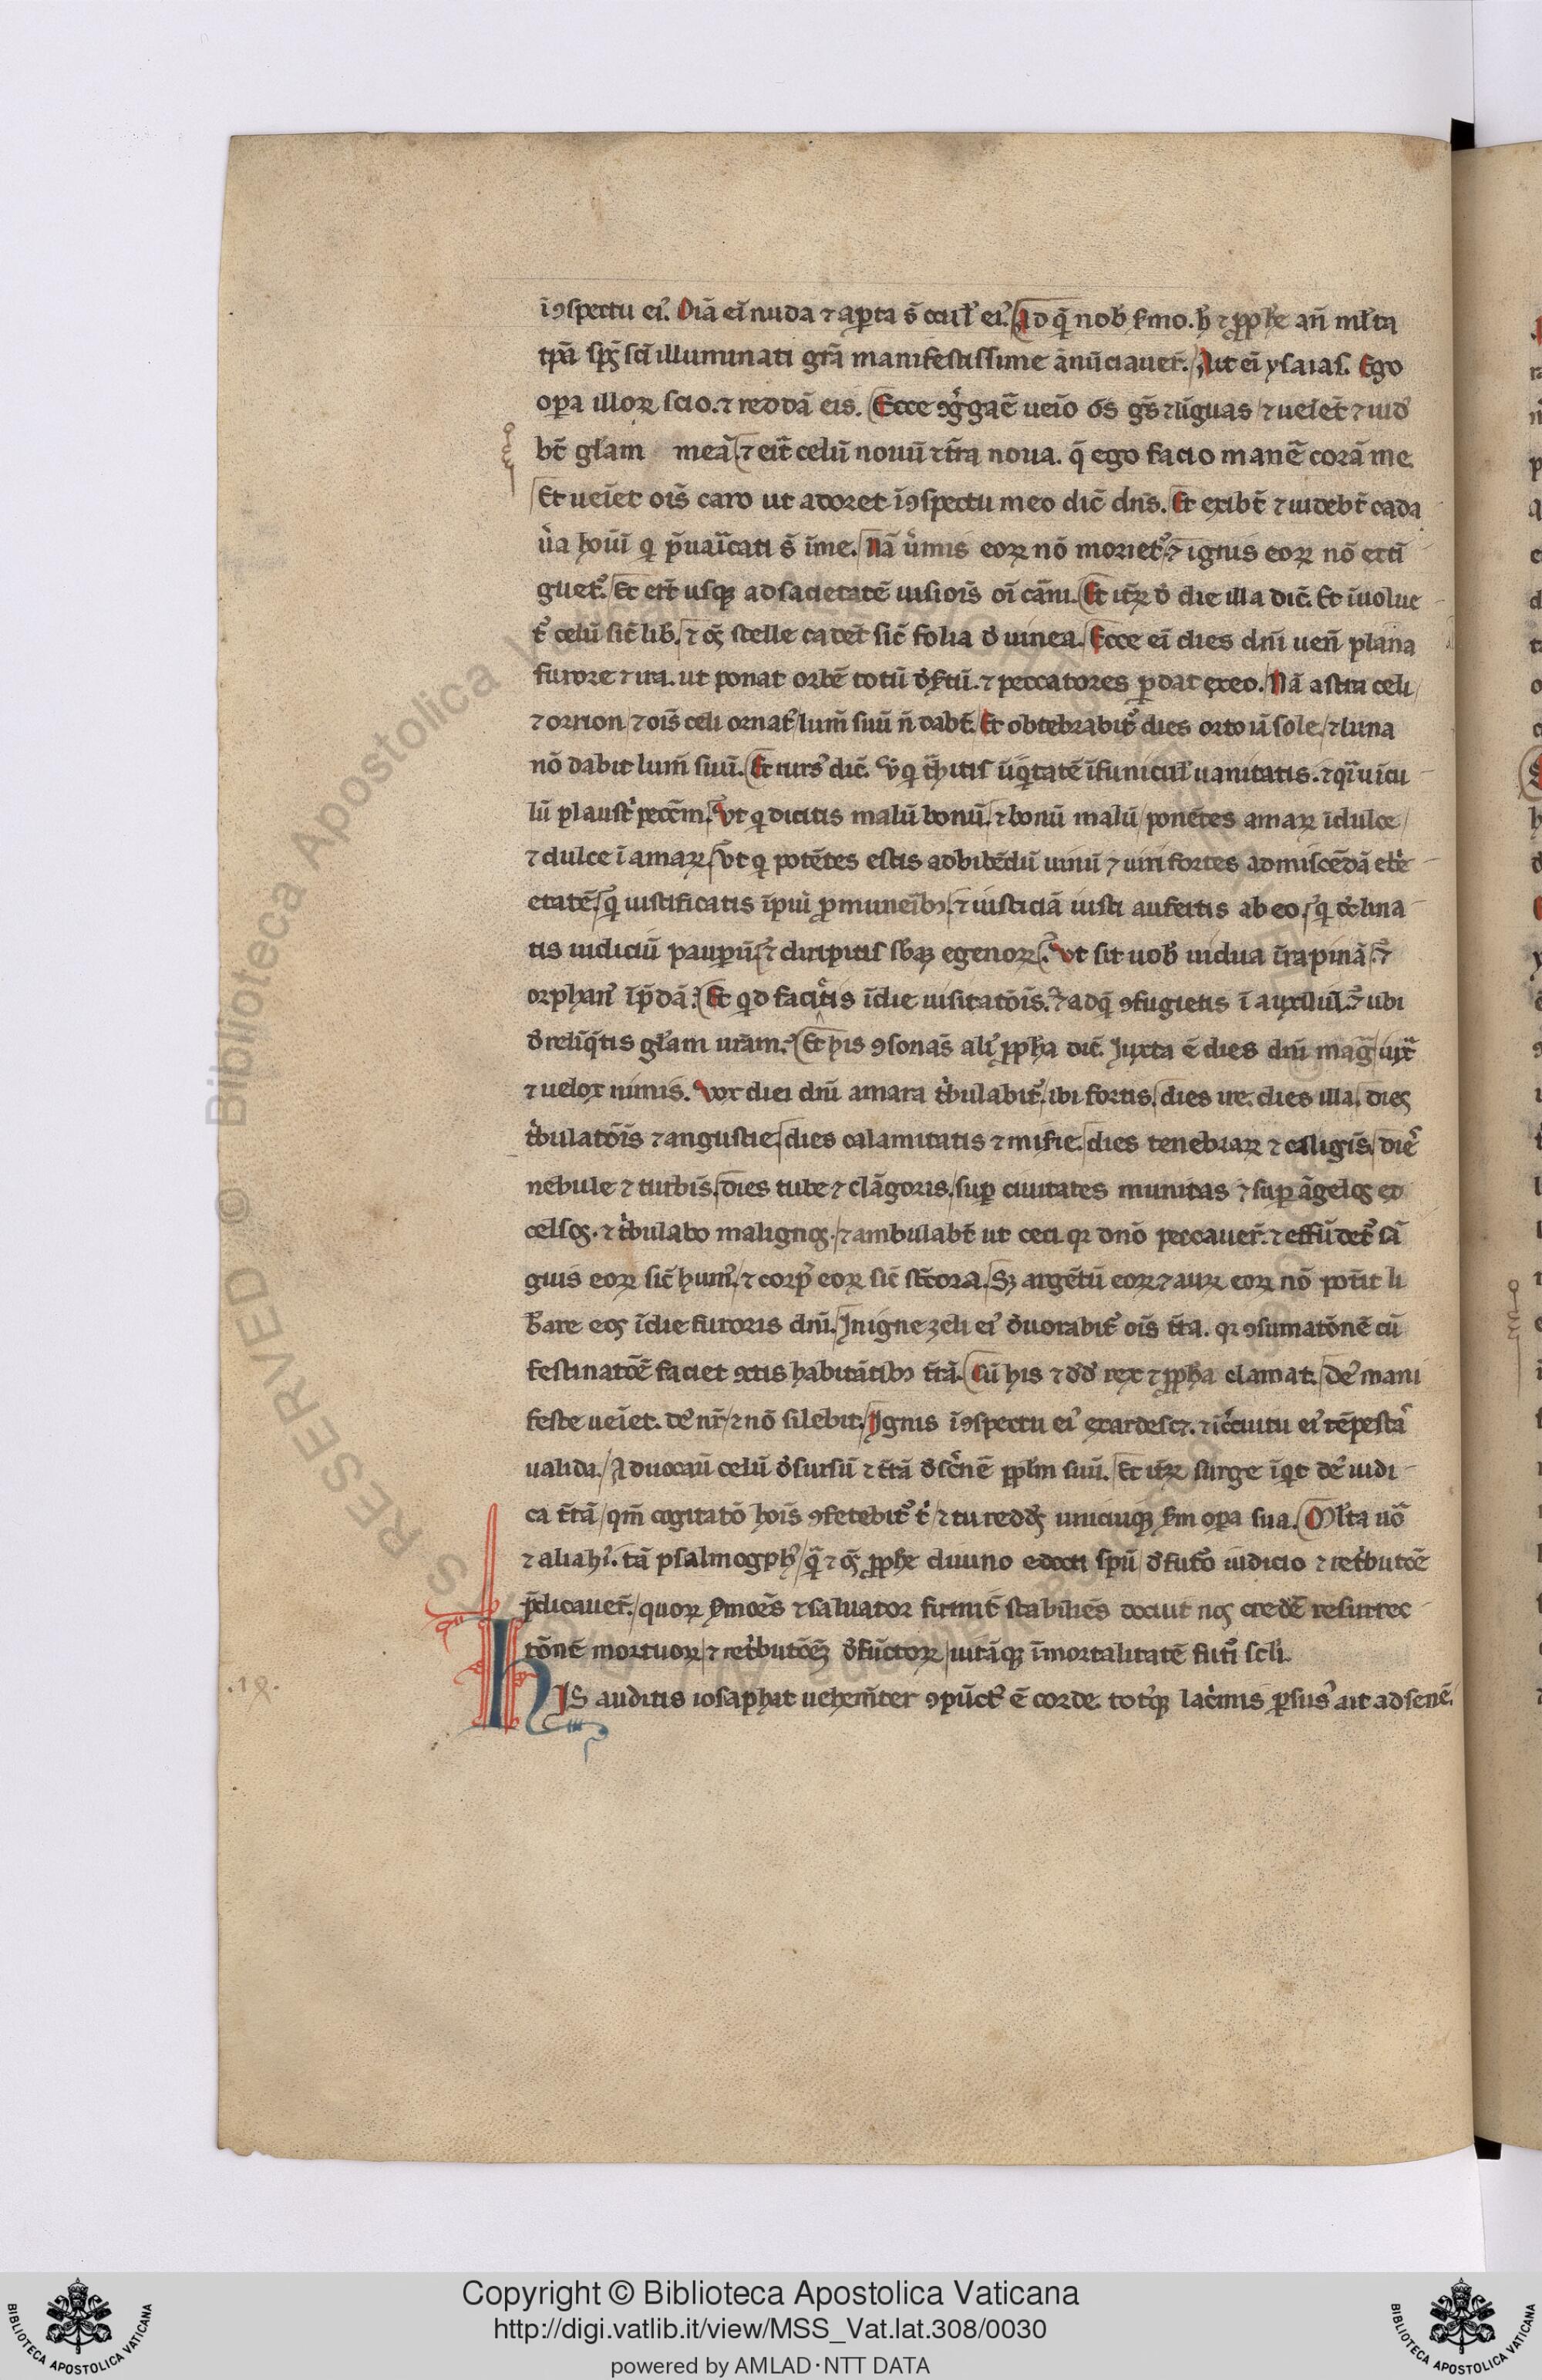 īꝯspectu ei᷒. Oīa eī nuda ⁊ aꝑta s̄ ocul̓ ei᷒. Ad q̄ nob̓ ẜmo. h̓ ⁊ ꝓph̓e an̄ ml̓ta
tꝑa sp̄s sc̄i illuminati gr̄a manifestissime ānūciauer̄. Ait eī ysaias. Ego
oꝑa illoꝝ scio. ⁊ reddā eis. Ecce ꝯg̓gaē ueīo ōs gēs ⁊ līguas ⁊ ueīet̄ ⁊ uid̓
bt̄ gl̓am meā ⁊ eit̄ celū nouū ⁊ t̄ra noua. q̄ ego facio manē̄ corā me.
Et ueīet oīs caro ut adoret īꝯspectu meo dic̄ dn̄s. Et exibt̄ ⁊ uidebt̄ cada
u̓a hoīū q p̄uaīcati s̄ ī me. Nā u̓mis eoꝝ nō moriet᷒ ⁊ ignis eoꝝ nō extī
guet᷒. Et erit usqꝫ ad sacietatē uisiōis oī cāni. Et it̄ꝝ d̓ die illa dic̄. Et īuolue
t᷒ celū sic̄ lib̓. ⁊ oēs stelle cadēt sic̄ folia d̓ uinea. Ecce eī dies dn̄i uen̄ plana
furore ⁊ ira. ut ponat orbē totū d̓ẜtū. ⁊ peccatores ꝑdat ex eo. Nā astra celi
⁊ orrion ⁊ oīs celi ornat᷒ lum̄ suū n̄ dabt̄. Et obtebrabit᷒ dies orto iā sole. ⁊ luna
nō dabit lum̄ suū. Et rurs᷒ dic̄. Ve q t̓hitis īiq̓tatē ī funicul̓ uanitatis. ⁊ q̄i uīcu
lū plaust̓ pecc̄m. Ve q dicitis malū bonū. ⁊ bonū malū ponētes amaꝝ ī dulce
⁊ dulce ī amaꝝ. Ve q potētes estis ad bibēdū uinū ⁊ uiri fortes ad miscēdā eb̓e
etatē. q iustificatis īpiū ꝓ muneībꝫ. ⁊ iusticiā iusti aufertis ab eo. q declina
tis iudiciū pauꝑū. ⁊ diripitis sb̄aꝫ egenoꝝ. Vt sit uob̓ uidua ī rapinā. ⁊
orphan᷒ ī p̄dā. Et qd facietis ī die uisitatōis. ⁊ ad q̄ ꝯfugietis ī auxiliū. ⁊ ubi
d̓relīq̄tis gl̓am uram. Et his ꝯsonās ali᷒ ꝓph̓a dic̄. Iuxta ē dies dn̄i mag᷒ iux̄
⁊ uelox nimis. Vox diei dn̄i amara t̓bulabit᷒. ibi fortis. dies ire. dies illa. dies
t̓bulatōis ⁊ angustie. dies calamitatis ⁊ mis̓ie. dies tenebraꝝ ⁊ caligīs. dies
nebule ⁊ turbis. dies tube ⁊ clāgoris. suꝑ ciuitates munitas ⁊ suꝑ āgelos ex
celsos. ⁊ t̓bulabo malignos. ⁊ ambulabt̄ ut ceci qꝛ dnō peccauer̄. ⁊ effūdet᷒ sā
guis eoꝝ sic̄ hum᷒. ⁊ corꝑ eoꝝ sic̄ st̓cora. Sꝫ argētū eoꝝ ⁊ auꝝ eoꝝ nō pot̄it li
b̓are eos ī die furoris dn̄i. In igne zeli ei᷒ d̓uorabit᷒ oīs t̄ra. qꝛ ꝯsumatōnē cū
festinatōē faciet ꝯtis habitātibꝫ t̄rā. Cū his ⁊ dd̓ rex ⁊ ꝓph̓a clamat. De᷒ mani
feste ueīet. de᷒ nr̄. ⁊ nō silebit. Ignis īꝯspectu ei᷒ exardescꝫ. ⁊ ī c̓cuitu ei᷒ tēpesta᷒
ualida. Aduocaū celū d̓sursū ⁊ t̄rā d̓sc̓nē ppl̓m suū. Et it̄ꝝ surge īq̓t de᷒ iudi
ca t̄rā. qm̄ cogitatō hoīs ꝯfitebit᷒ t̓ ⁊ tu reddes unicuiqꝫ ẜm oꝑa sua. Ml̓ta uō
⁊ alia hi᷒. tā psalmogph᷒ q̄ ⁊ oēs ꝓph̓e diuino edocti sp̄u d̓ fut̄o iudicio ⁊ ret̓butōē
p̄dicauer̄. quoꝝ ẜmoēs ⁊ saluator firmit̄ stabiliēs docuit nos credē̓ resurrec
tōnē mortuoꝝ ⁊ ret̓butōēꝫ d̓fūctoꝝ uitāqꝫ īmortalitatē fut̓i sc̄li.
.19.
HIS auditis iosaphat uehem̄ter ꝯpūct᷒ ē corde. totqꝫ lac̓mis ꝑfus᷒ ait ad senē.
Copyright © Biblioteca Apostolica Vaticana
http://digi.vatlib.it/view/MSS_Vat.lat.308/0030
powered by AMLAD·NTT DATA
BIBLIOTECA APOSTOLICA VATICANA
BIBLIOTECA APOSTOLICA VATICANA